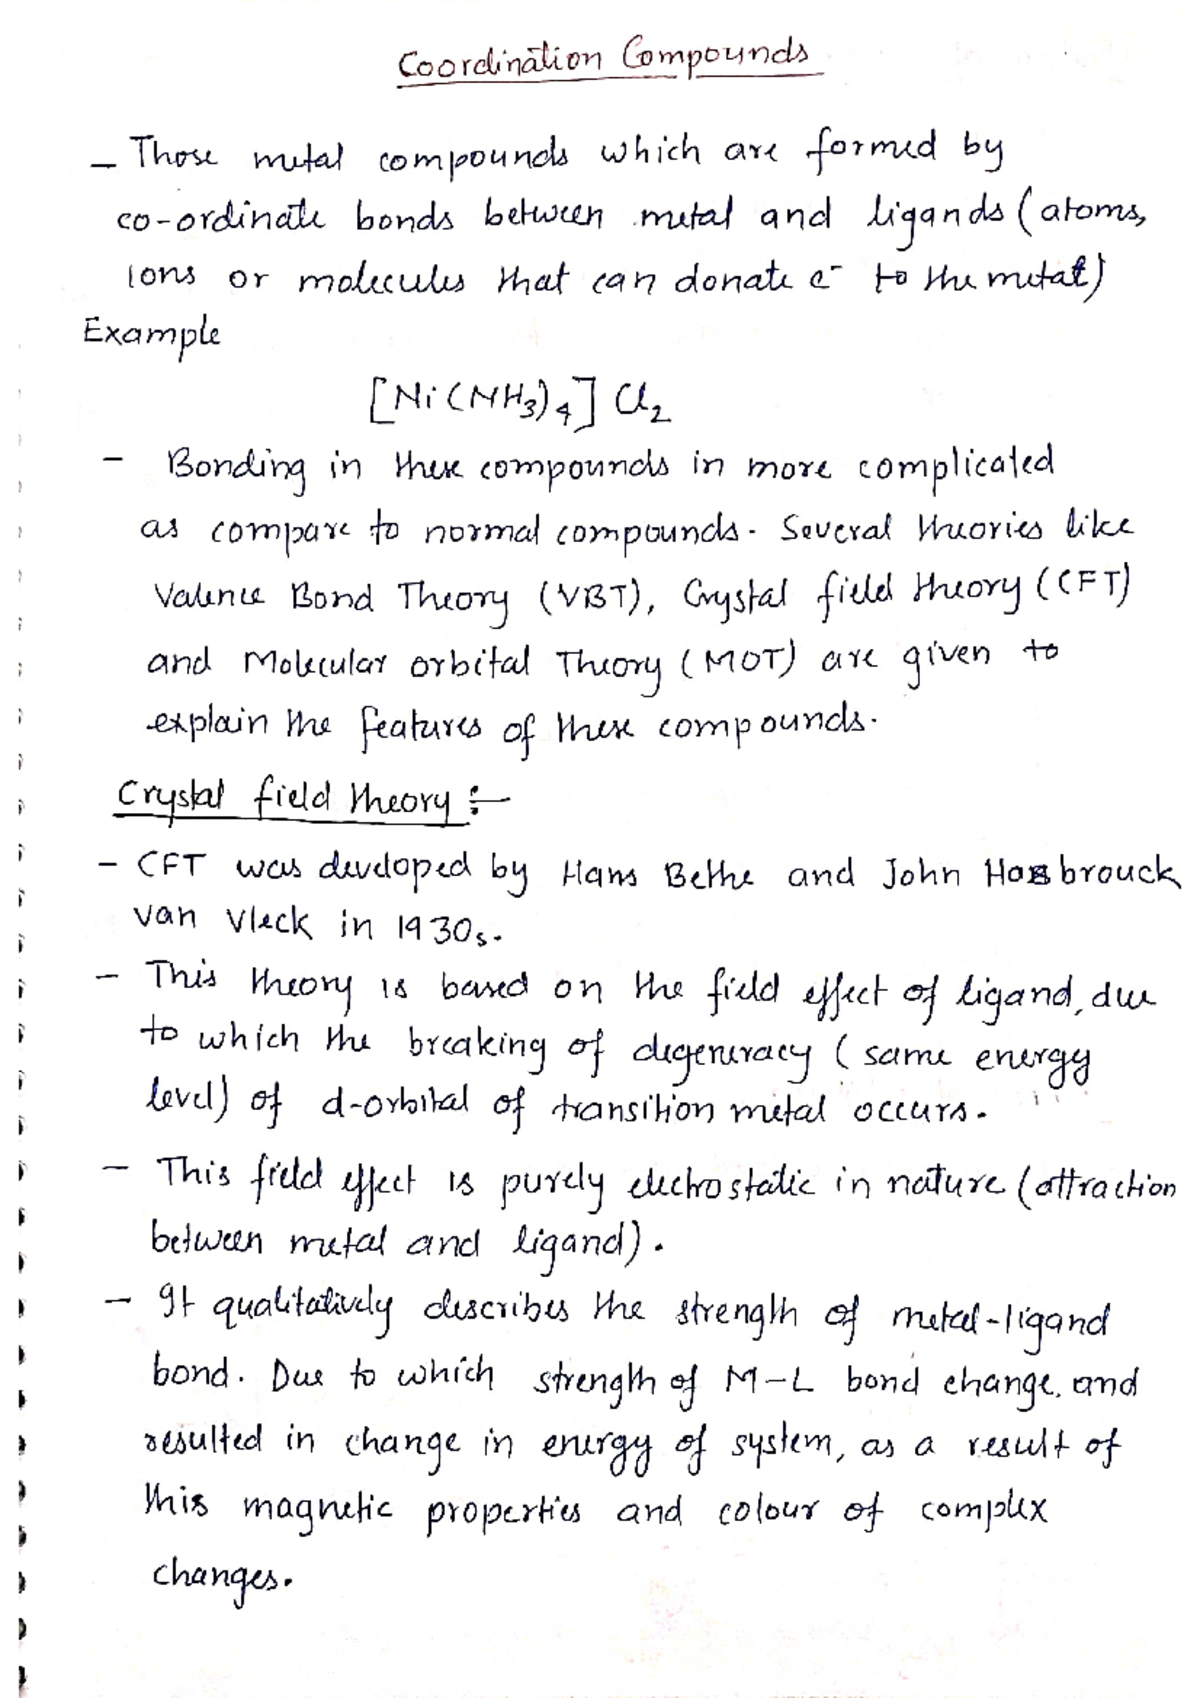 Coordination Compounds
- Those metal compounds which are formed by
co-ordinate bonds between metal and ligands (atoms,
ions or molecules that can donate e⁻ to the metal)
Example
[Ni(NH₃)₄] Cl₂
- Bonding in these compounds in more complicated
as compare to normal compounds. Several theories like
Valence Bond Theory (VBT), Crystal field theory (CFT)
and Molecular orbital Theory (MOT) are given to
explain the features of these compounds.
Crystal field theory :-
- CFT was developed by Hans Bethe and John Hasbrouck
van Vleck in 1930s.
- This theory is based on the field effect of ligand, due
to which the breaking of degeneracy (same energy
level) of d-orbital of transition metal occurs.
- This field effect is purely electrostatic in nature (attraction
between metal and ligand).
- It qualitatively describes the strength of metal-ligand
bond. Due to which strength of M-L bond change, and
resulted in change in energy of system, as a result of
this magnetic properties and colour of complex
changes.